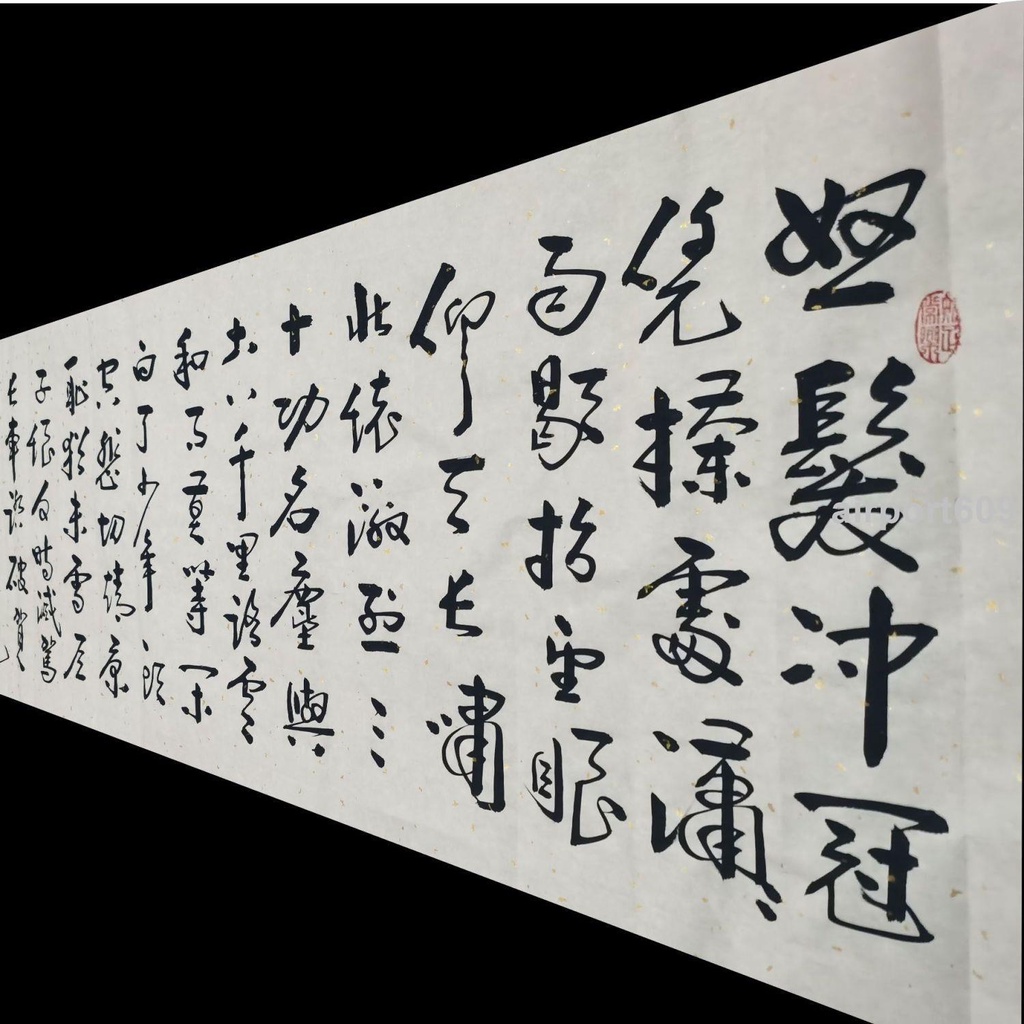 怒髮冲冠
凭欄處瀟々
雨歇抬望眼
仰天長嘯
壯懷激烈三
十功名塵與
土八千里路雲
和月莫等閑
白了少年頭
空悲切靖康
恥猶未雪臣
子恨何時滅駕
長車踏破賀
airport609